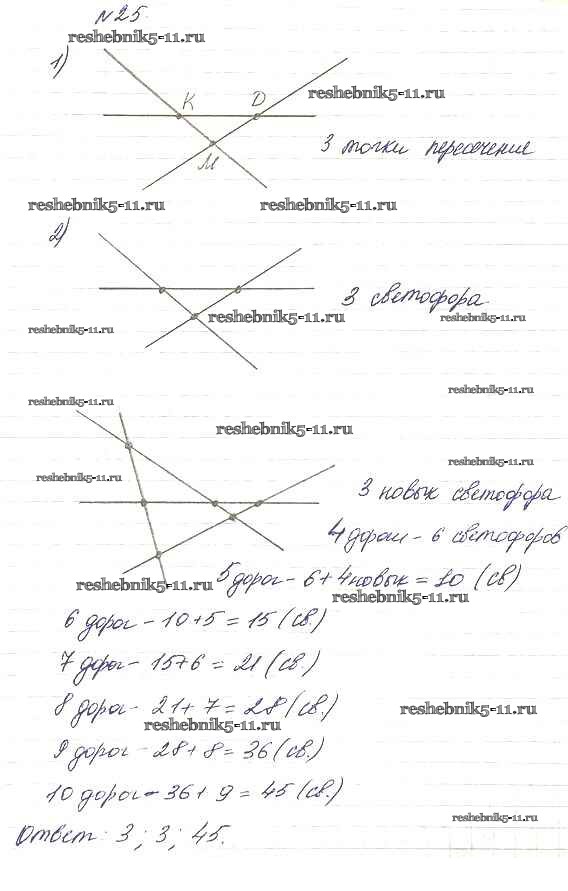 №25.
reshebnik5-11.ru
1)
reshebnik5-11.ru
К D
М
3 точки пересечения
reshebnik5-11.ru reshebnik5-11.ru
2)
3 светофора
reshebnik5-11.ru reshebnik5-11.ru
reshebnik5-11.ru
reshebnik5-11.ru
reshebnik5-11.ru
reshebnik5-11.ru
reshebnik5-11.ru
reshebnik5-11.ru
3 новых светофора
4 дороги - 6 светофоров
5 дорог - 6 + 4 новых = 10 (св)
reshebnik5-11.ru reshebnik5-11.ru
6 дорог - 10 + 5 = 15 (св.)
7 дорог - 15 + 6 = 21 (св.)
8 дорог - 21 + 7 = 28 (св.)
reshebnik5-11.ru reshebnik5-11.ru
9 дорог - 28 + 8 = 36 (св.)
10 дорог - 36 + 9 = 45 (св.)
reshebnik5-11.ru
Ответ: 3; 3; 45.